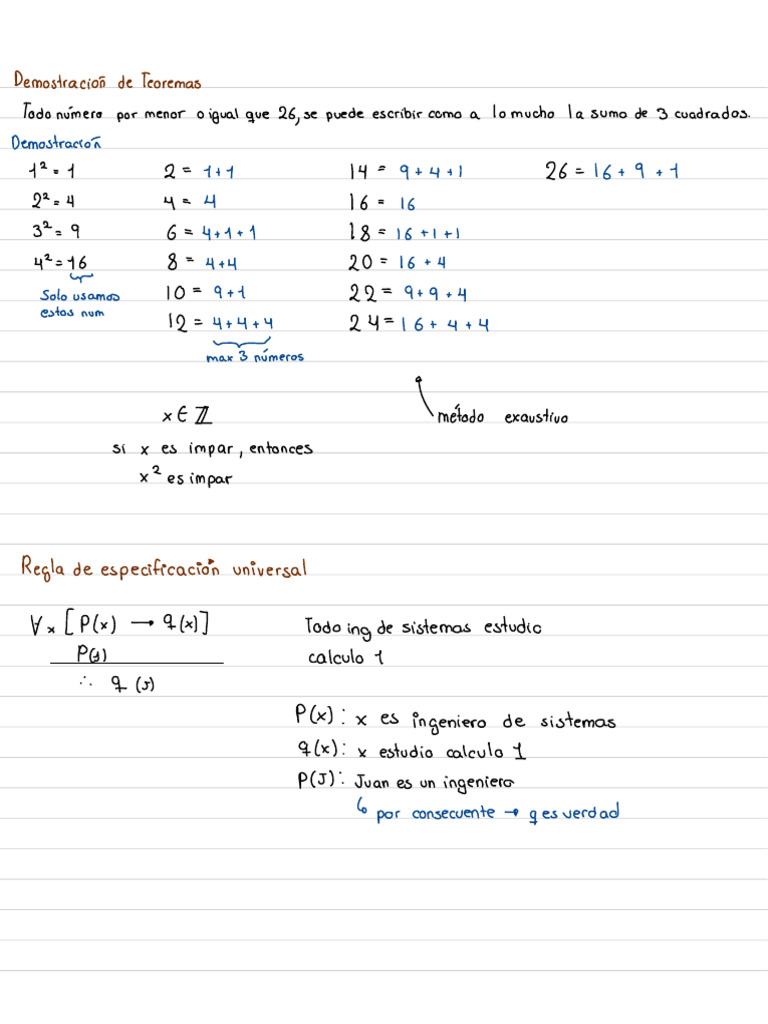 Demostración de Teoremas
Todo número por menor o igual que 26, se puede escribir como a lo mucho la suma de 3 cuadrados.
Demostración
1² = 1
2² = 4
3² = 9
4² = 16
Solo usamos
estos num
2 = 1+1
4 = 4
6 = 4+1+1
8 = 4+4
10 = 9+1
12 = 4+4+4
max 3 números
14 = 9+4+1
16 = 16
18 = 16+1+1
20 = 16+4
22 = 9+9+4
24 = 16+4+4
26 = 16+9+1
método exaustivo
x ∈ ℤ
si x es impar, entonces
x² es impar
Regla de especificación universal
∀x [P(x) → q(x)]
P(J)
∴ q(J)
Todo ing de sistemas estudio
calculo 1
P(x): x es ingeniero de sistemas
q(x): x estudio calculo 1
P(J): Juan es un ingeniero
↳ por consecuente → q es verdad